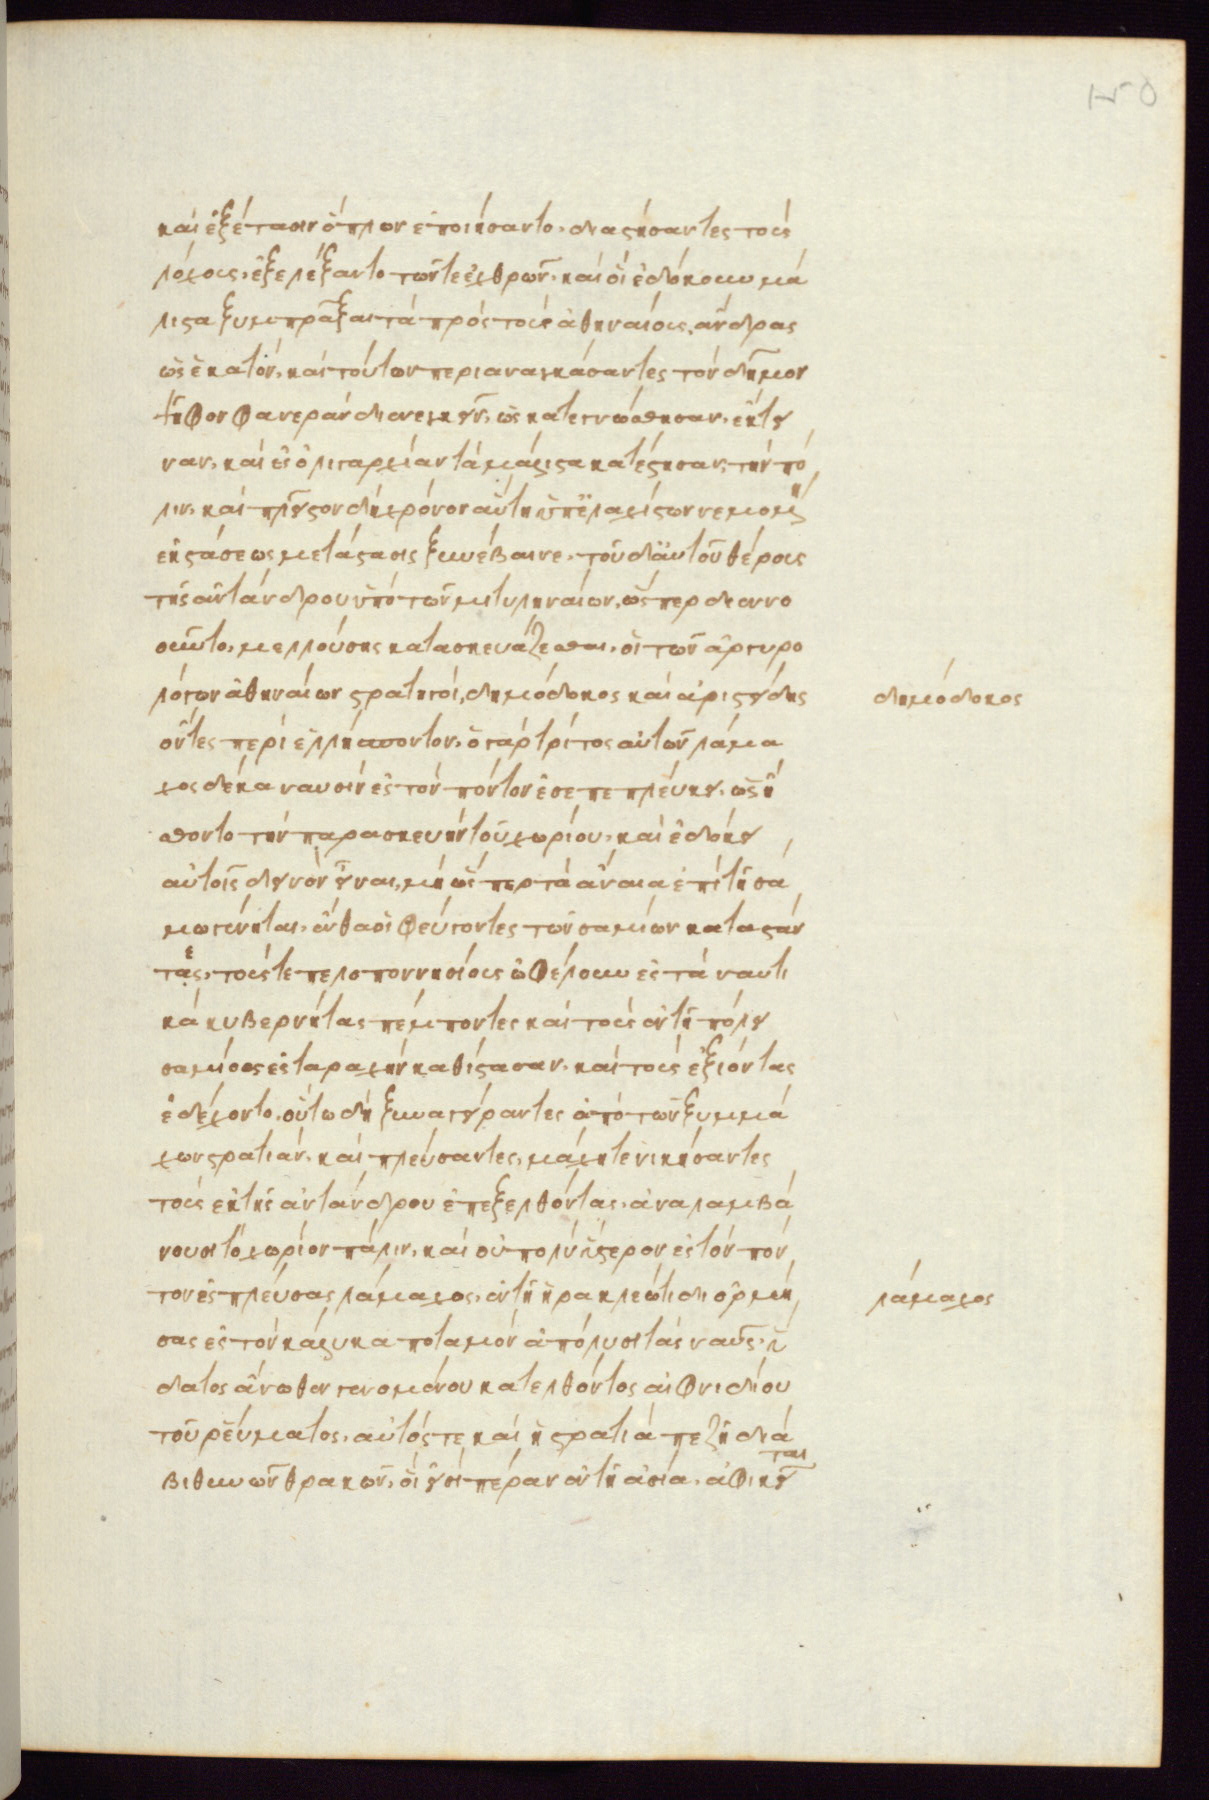 150
καὶ ἐξέτασιν ὅπλων ἐποιήσαντο, διαστήσαντες τοὺς
λόχους, ἐξελέξαντο τῶν τε ἐχθρῶν, καὶ οἳ ἐδόκουν μά
λιστα ξυμπρᾶξαι τὰ πρὸς τοὺς ἀθηναίους, ἄνδρας
ὡς ἑκατόν, καὶ τούτων πέρι ἀναγκάσαντες τὸν δῆμον
ψῆφον φανερὰν διενεγκεῖν, ὡς κατεγνώσθησαν, ἔκτει
ναν, καὶ ἐς ὀλιγαρχίαν τὰ μάλιστα κατέστησαν τὴν πό
λιν, καὶ πλεῖστον δὴ χρόνον αὕτη ὑπ' ἐλαχίστων γενομένη
ἐκ στάσεως μετάστασις ξυνέβαινε. τοῦ δ' αὐτοῦ θέρους
τῆς ἀντάνδρου ὑπὸ τῶν μιτυληναίων, ὥσπερ διενο
οῦντο, μελλούσης κατασκευάζεσθαι, οἱ τῶν ἀργυρο
λόγων ἀθηναίων στρατηγοί, δημόδοκος καὶ ἀριστείδης
ὄντες περὶ ἑλλήσποντον, ὁ γὰρ τρίτος αὐτῶν λάμα
χος δέκα ναυσὶν ἐς τὸν πόντον ἐσεπεπλεύκει, ὡς ᾐ
σθοντο τὴν παρασκευὴν τοῦ χωρίου, καὶ ἐδόκει
αὐτοῖς δεινὸν εἶναι, μὴ ὥσπερ τὰ ἄναια ἐπὶ τῇ σά
μω γένηται, ἔνθα οἱ φεύγοντες τῶν σαμίων καταστάν
τες, τούς τε πελοποννησίους ὠφέλουν ἐς τὰ ναυτι
κὰ κυβερνήτας πέμποντες καὶ τοὺς ἐν τῇ πόλει
σαμίους ἐς ταραχὴν καθίστασαν, καὶ τοὺς ἐξιόντας
ἐδέχοντο, οὕτω δὴ ξυναγείραντες ἀπὸ τῶν ξυμμά
χων στρατιάν, καὶ πλεύσαντες, μάχη τε νικήσαντες
τοὺς ἐκ τῆς ἀντάνδρου ἐπεξελθόντας, ἀναλαμβά
νουσι τὸ χωρίον πάλιν, καὶ οὐ πολὺ ὕστερον ἐς τὸν πόν
τον ἐσπλεύσας λάμαχος, ἐν τῇ ἡρακλεώτιδι ὁρμή
σας ἐς τὸν κάληκα ποταμὸν ἀπόλυσι τὰς ναῦς, ὕ
δατος ἄνωθεν γενομένου κατελθόντος αἰφνιδίου
τοῦ ῥεύματος, αὐτός τε καὶ ἡ στρατιὰ πεζῇ διὰ
βιθυνῶν θρακῶν, οἵ εἰσι πέραν ἐν τῇ ἀσία, ἀφικνεῖται
δημόδοκος
λάμαχος